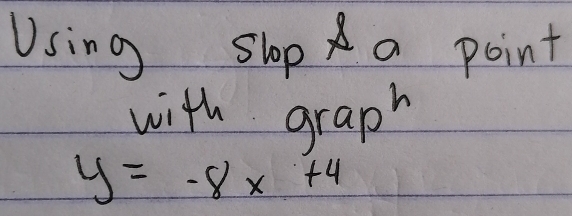 Using slop & a point
with graph
y = -8x +4